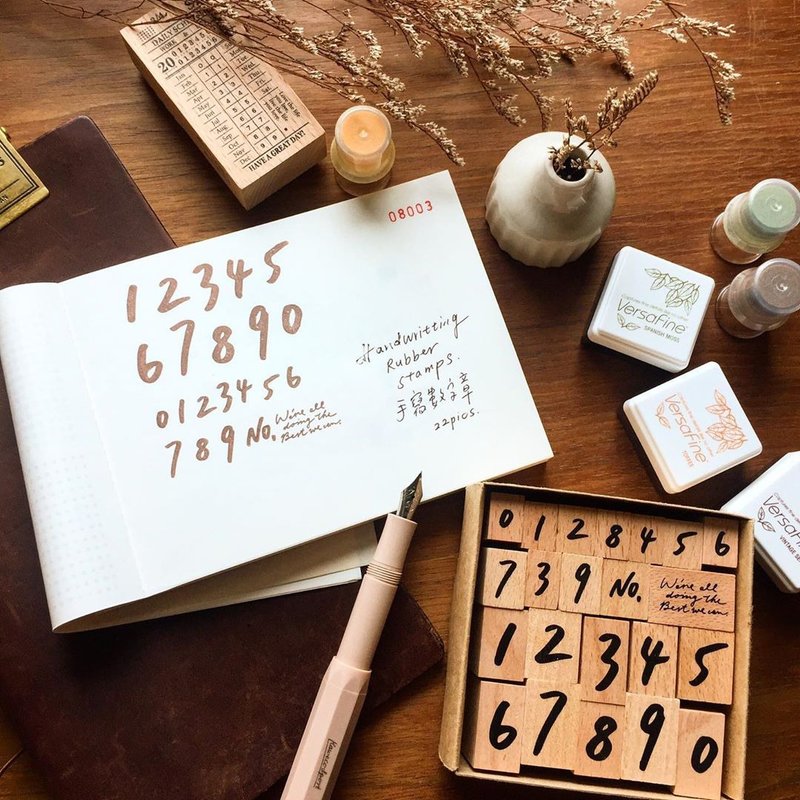 08003
12345
67890
0123456
789 No. We're all
doing the
Best we can.
Handwritting
Rubber
stamps.
手寫數字章
22pics.
20
Jan
Feb
Mar
Apr
May
Jun
Jul
Aug
Sep
Oct
Nov
Dec
HAVE A GREAT DAY!
VersaFine
SPANISH MOSS
VersaFine
TOFFEE
VersaFine
0 1 2 8 4 5 6
7 3 9 No. We're all
doing the
Best we can.
1 2 3 4 5
6 7 8 9 0